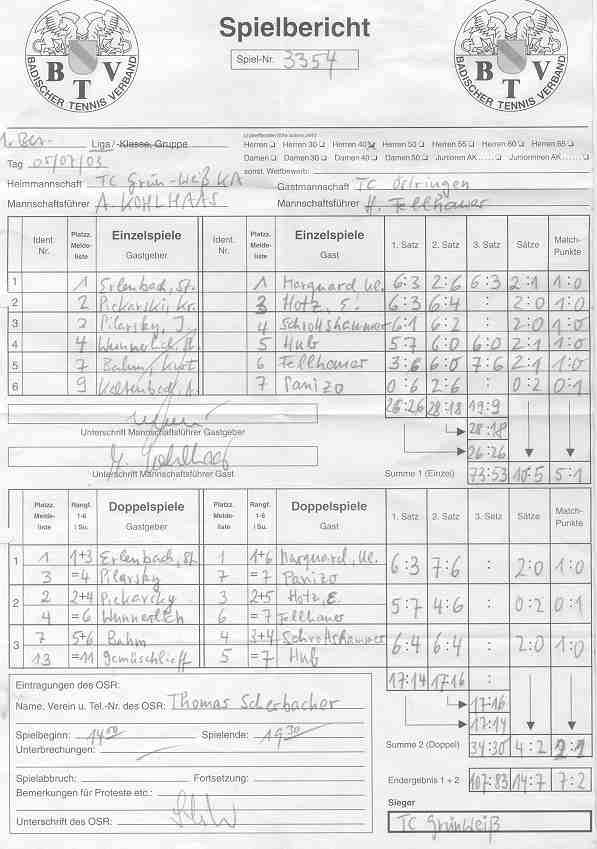 Spielbericht
BADISCHER TENNIS VERBAND
BTV
BADISCHER TENNIS VERBAND
BTV
Spiel-Nr. 3354
Liga/ Klasse, Gruppe
Herren Herren 30 Herren 40 Herren 50 Herren 55 Herren 60 Herren 65
Tag 05/07/03
Damen Damen 30 Damen 40 Damen 50 Junioren AK Juniorinnen AK
sonst. Wettbewerb:
Heimmannschaft TC Grün-Weiß KA Gastmannschaft TC Östringen
Mannschaftsführer A. KOHLHAAS Mannschaftsführer H. Fellhauer
Ident. Nr. Platzz. Meldeliste Einzelspiele Gastgeber Ident. Nr. Platzz. Meldeliste Einzelspiele Gast 1. Satz 2. Satz 3. Satz Sätze Match-Punkte
1 1 Erlenbach, St. 1 Marquard, Ul. 6:3 2:6 6:3 2:1 1:0
2 2 Pickarski, Kr. 3 Hotz, E. 6:3 6:4 : 2:0 1:0
3 2 Pilarsky, J. 4 Schrottshammer 6:1 6:2 : 2:0 1:0
4 4 Wunnerlich 5 Hub 5:7 6:0 6:0 2:1 1:0
5 7 Bahm, Kurt 6 Fellhauer 3:6 6:0 7:6 2:1 1:0
6 9 Kaltenbach, A. 7 Panizo 0:6 2:6 : 0:2 0:1
26:26 28:18 19:9
Unterschrift Mannschaftsführer Gastgeber
28:18
26:26
Unterschrift Mannschaftsführer Gast
Summe 1 (Einzel) 73:53 10:5 5:1
Platzz. Meldeliste Rangf. 1-6 / Su. Doppelspiele Gastgeber Platzz. Meldeliste Rangf. 1-6 / Su. Doppelspiele Gast 1. Satz 2. Satz 3. Satz Sätze Match-Punkte
1 1 1+3 Erlenbach, St. 1 1+6 Marquard, Ul. 6:3 7:6 : 2:0 1:0
3 =4 Pilarsky 7 =7 Panizo
2 2 2+4 Pickarsky 3 2+5 Hotz, E. 5:7 4:6 : 0:2 0:1
4 =6 Wunnerlich 6 =7 Fellhauer
3 7 5+6 Bahm 4 3+4 Schrottshammer 6:4 6:4 : 2:0 1:0
13 =11 Gemüschlieff 5 =7 Hub
17:14 17:16 :
Eintragungen des OSR:
Name, Verein u. Tel.-Nr. des OSR: Thomas Scherbacher
17:16
17:14
Spielbeginn: 14 00 Spielende: 19 30
Unterbrechungen:
Summe 2 (Doppel) 34:30 4:2 2:1
Spielabbruch: Fortsetzung:
Endergebnis 1 + 2 107:83 14:7 7:2
Bemerkungen für Proteste etc.:
Sieger
Unterschrift des OSR:
TC Grünweiß